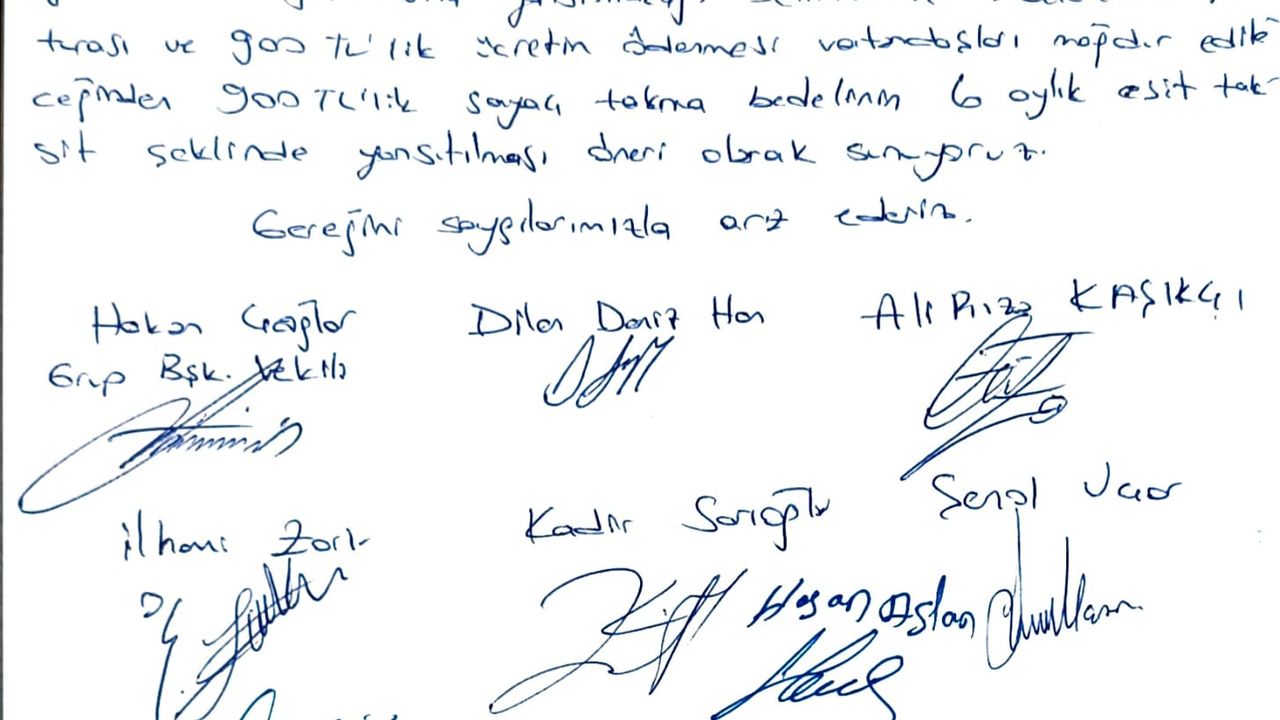 turası ve 900 TL'lik ücretin ödenmesi vatandaşları mağdur edile
ceğinden 900 TL'lik sayaç takma bedelinin 6 aylık eşit tak-
sit şeklinde yansıtılması öneri olarak sunuyoruz.
Gereğini saygılarımızla arz ederiz.
Hakan Çağlar Dilan Deniz Han Ali Rıza KAŞIKÇI
Grup Bşk. Vekili
İlhami Kadir Sarıoğlu Şenol Uçar
Hasan Aslan